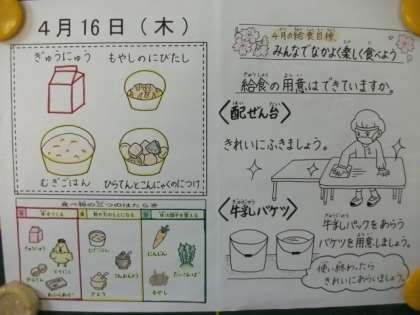 4月16日（木）
ぎゅうにゅう
もやしのにびたし
むぎごはん
ひらてんとこんにゃくのにつけ
食べ物の三つのはたらき
ぎゅうにゅう
とりにく
むぎごはん
さとう
にんじん
もやし
4月の給食目標
みんなでなかよく楽しく食べよう
給食の用意はできていますか。
〈配ぜん台〉
きれいにふきましょう。
〈牛乳バケツ〉
牛乳パックをあらう
バケツを用意しましょう。
使い終わったら
きれいにあらいましょう。